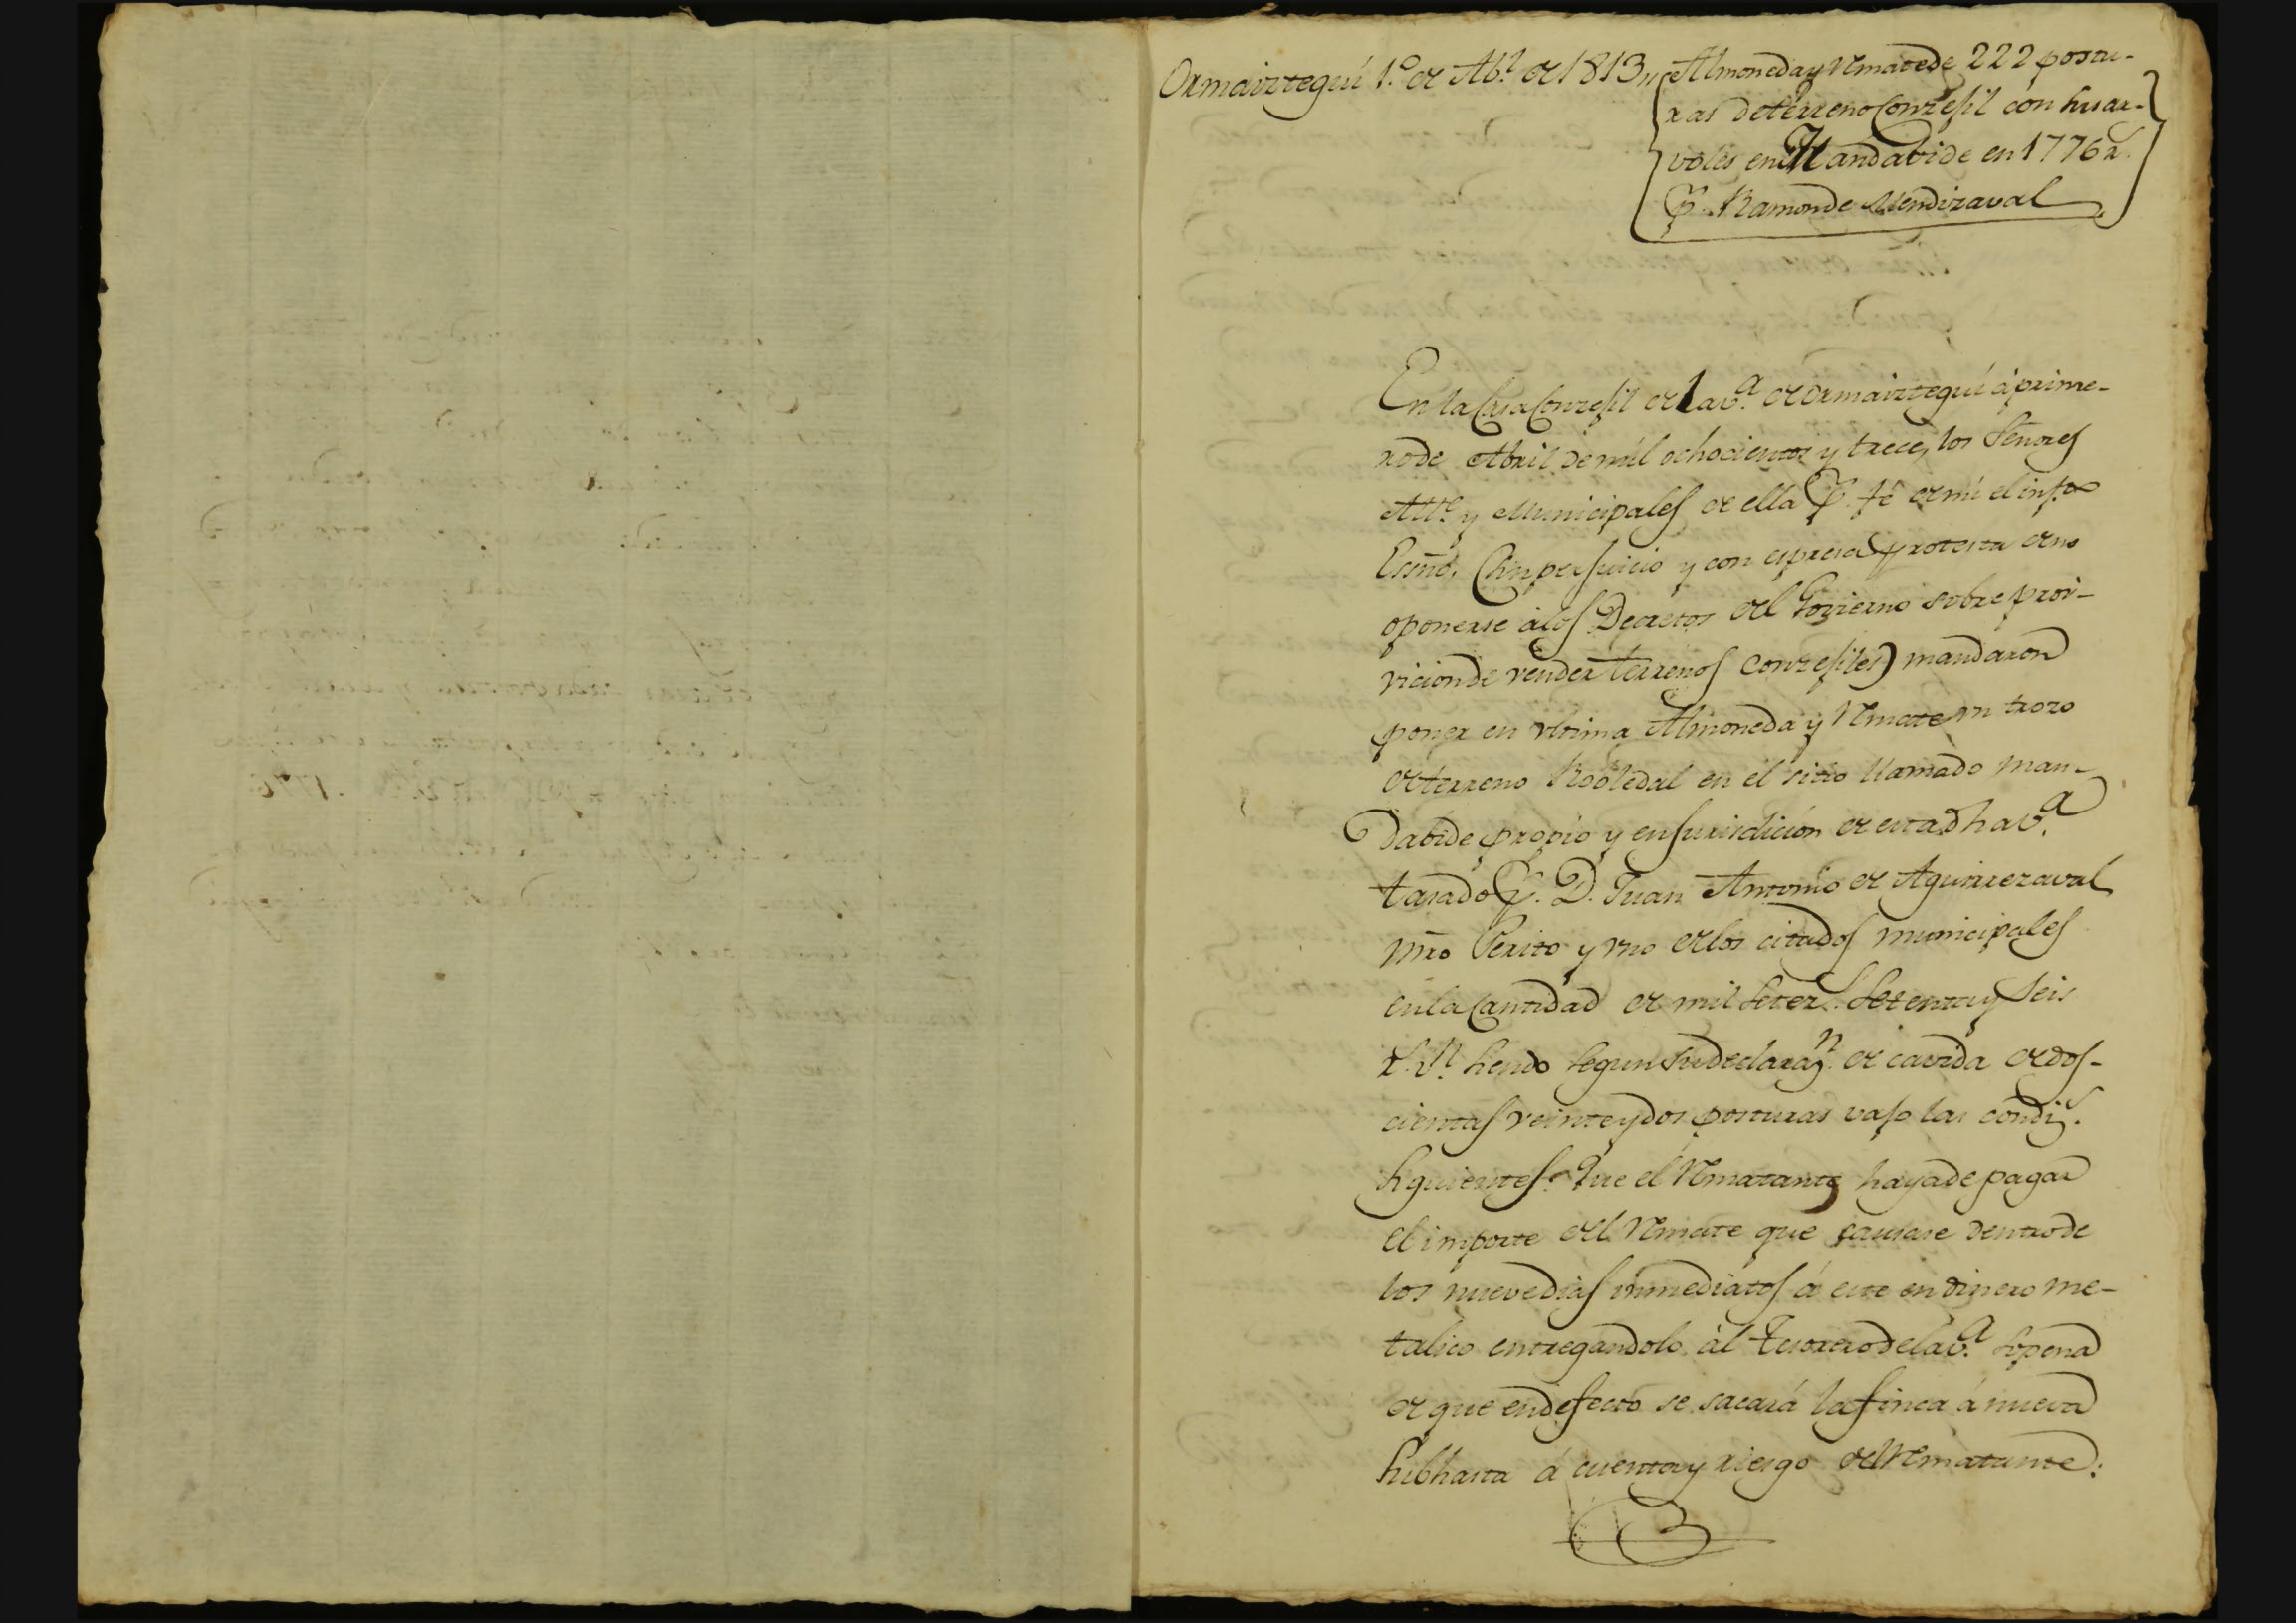 Ormaiztegui 1.º de Ab.l de 1813,,
Almoneda y Remate de 222 postu-
ras de terreno Conzegil con su ar-
voles en Mandabide en 1776 r.s
p.r Ramon de Mendizaval
En la Casa Conzegil de la v.a de Ormaiztegui á prime-
ro de Abril de mil ochocientos y trece, los Señores
Alc.e y Municipales de ella p.r fe de mi el infro
Essno, (sin perjuicio y con espresa protesta de no
oponerse á los Decretos del Govierno sobre proi-
vicion de vender terrenos Conzegiles) mandaron
poner en ultima Almoneda y Remate un trozo
de terreno Robledal en el sitio llamado Man-
dabide propio y en jurisdicion de esta dha v.a
tasado p.r D. Juan Antonio de Aguirrezaval
Mro Perito y uno de los citados municipales
en la Cantidad de mil setez.s setenta y seis
r.s v.n siendo segun su declaraz.n de cavida de dos-
cientas veinte y dos posturas vajo las condiz.s
siguientes: Que el Rematante haya de pagar
el importe del Remate que causare dentro de
los nueve dias inmediatos á este en dinero me-
talico entregandolo al Tesorero de la v.a sopena
de que en defecto se sacará la finca á nueva
subhasta á cuenta y riesgo del Rematante: